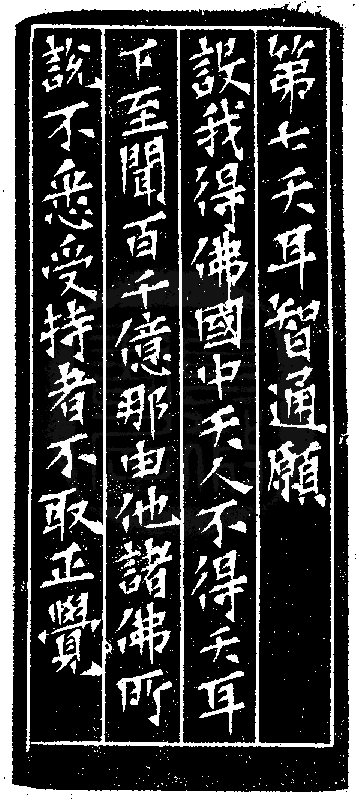 第七天耳智通願
設我得佛國中天人不得天耳
下至聞百千億那由他諸佛所
説不悉受持者不取正覺